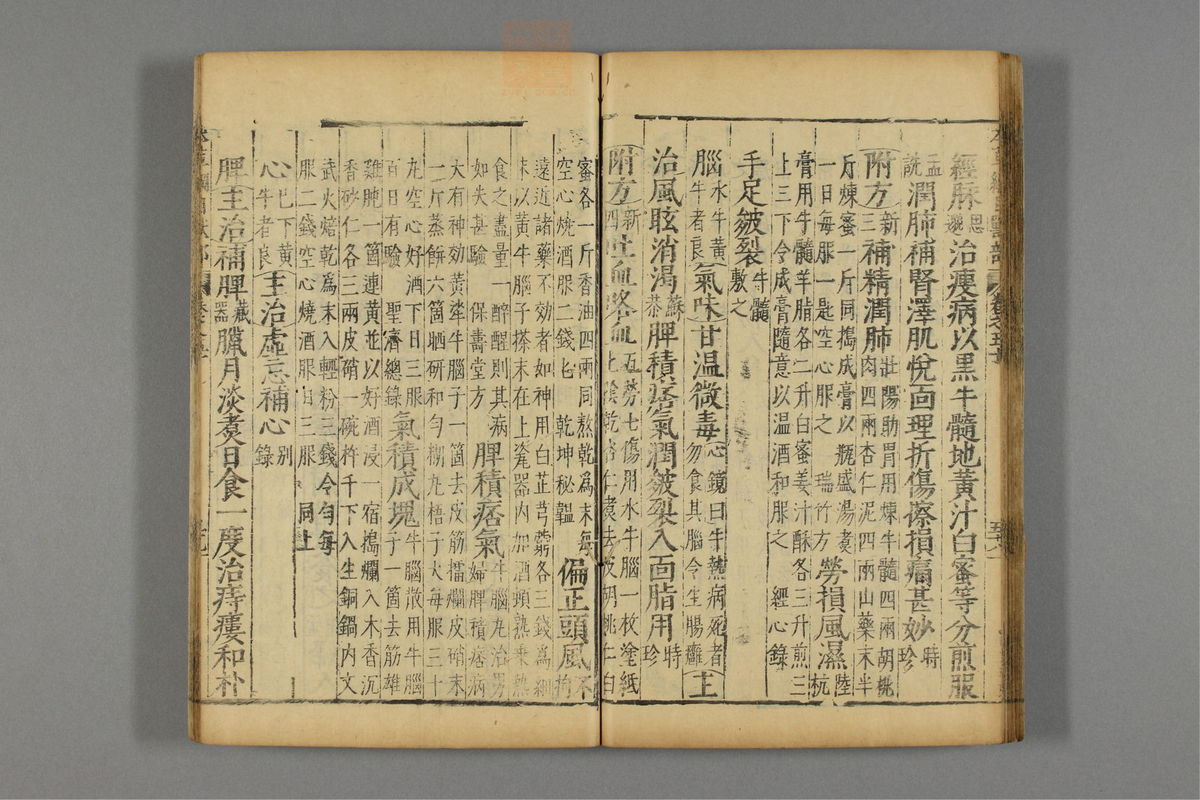 經脉思邈治瘦病以黒牛髓地黃汁白蜜等分煎服
孟詵潤肺補腎澤肌悅面理折傷擦損痛甚妙時珍
附方新三補精潤肺壯陽助胃用煉牛髓四兩胡桃肉四兩杏仁泥四兩山藥末半
斤煉蜜一斤同搗成膏以瓶盛湯煮一日每服一匙空心服之 瑞竹方 勞損風濕陸杭
膏用牛髓羊脂各二升白蜜姜汁酥各三升煎三上三下令成膏隨意以温酒和服之 經心錄
手足皴裂牛髓敷之
腦水牛黃牛者良氣味甘温微毒心鏡曰牛熱病死者勿食其腦令生腸癰主
治風眩消渴蘇恭脾積痞氣潤皴裂入面脂用時珍
附方新四吐血咯血五勞七傷用水牛腦一枚塗紙上陰乾杏仁煮去皮胡桃仁白
蜜各一斤香油四兩同熬乾爲末每空心燒酒服二錢匕 乾坤秘韞 偏正頭風不拘
遠近諸藥不効者如神用白芷芎藭各三錢爲細末以黃牛腦子搽末在上瓷器內加酒頓熟乗熱
食之盡量一醉醒則其病如失甚驗 保壽堂方 脾積痞氣牛腦丸治男婦脾積痞病
大有神効黃犂牛腦子一箇去皮筋擂爛皮硝末一斤蒸餅六箇晒研和勻糊丸梧子大每服三十
丸空心好酒下日三服百日有驗 聖濟總錄 氣積成塊牛腦散用牛腦子一箇去筋雄
雞肫一箇連黃並以好酒浸一宿搗爛入木香沉香砂仁各三兩皮硝一碗杵千下入生銅鍋內文
武火焙乾爲末入輕粉三錢令勻每服二錢空心燒酒服日三服 同上
心已下黃牛者良主治虛忘補心別錄
脾主治補脾藏器臘月淡煮日食一度治痔瘻和朴